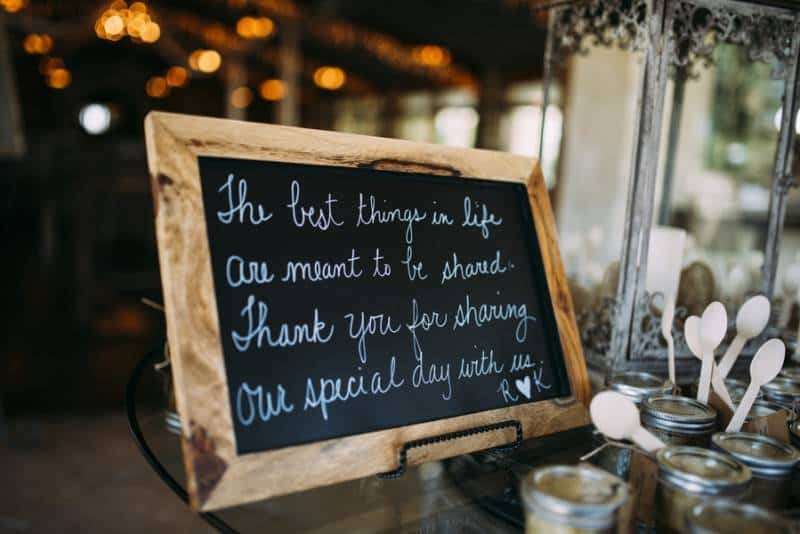 The best things in life
are meant to be shared.
Thank you for sharing
our special day with us.
R ♥ K